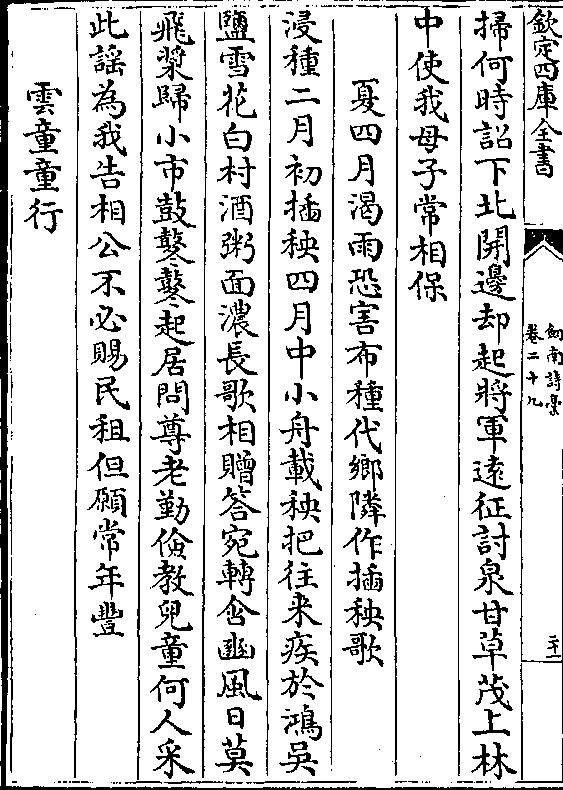 欽定四庫全書
劒南詩稾
卷二十九
二十一
掃何時詔下北開邊却起將軍遠征討泉甘草茂上林
中使我母子常相保
夏四月渴雨恐害布種代鄉隣作插秧歌
浸種二月初插秧四月中小舟載秧把往来疾於鴻吳
鹽雪花白村酒粥面濃長歌相贈答宛轉含豳風日莫
飛槳歸小市鼓鼕鼕起居問尊老勤儉教兒童何人采
此謡為我告相公不必賜民租但願常年豐
雲童童行